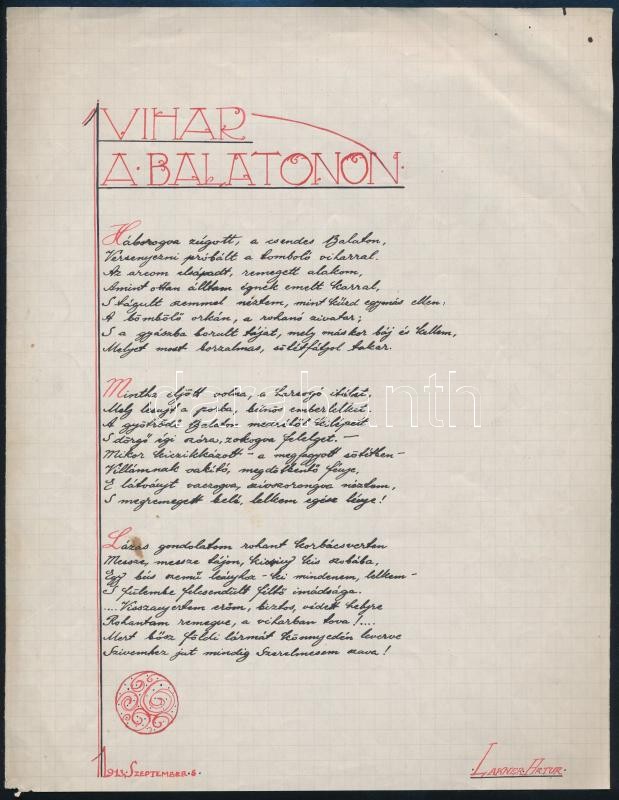 VIHAR
A·BALATONON·
Háborogva zúgott, a csendes Balaton,
Versenyezni próbált a tomboló viharral.
Az arcom elsápadt, remegett alakom,
Amint ottan álltam égnek emelt karral,
S tágult szemmel néztem, mint küzd egymás ellen:
A bömbölő orkán, a rohanó zivatar;
S a gyászba borult tájat, mely máskor báj és kellem,
Melyet most borzalmas, sötét fátyol takar.
Mintha eljött volna, a harsogó itélet,
Mely lesujt a porba, bűnös emberlelket
A gyötrődő Balaton medréből kilépett
S dörgő égi szóra, zokogva felelget. —
Mikor kiczikkázott - a megfagyott sötétben -
Villámnak vakító, megdöbbentő fénye,
E látványt vacogva, szívszorongva néztem,
S megremegett belé, lelkem egész lénye!
Lázas gondolatom rohant korbácsverten
Messze, messze tájon, kicsiny kis szobába,
Egy bús szemű leányhoz - ki mindenem, lelkem -
S fülembe felcsendült féltő imádsága.
....Visszanyertem erőm, biztos, védett helyre
Rohantam remegve, a viharban tova!....
Mert bősz földi lármát könnyedén leverve
Szivemhez jut mindig Szerelmesem szava!
1913. SZEPTEMBER·6·
·LAKNER·ARTUR·
darabanth